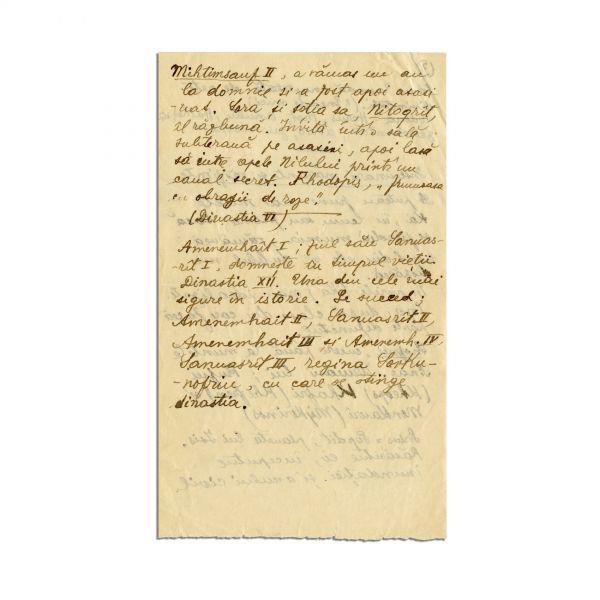 Mihtimsauf II, a rămas un an
la domnie si a fost apoi asasi-
-nat. Sora si sotia sa, Nitogrit
îl răzbună. Invită intr'o sală
subterană pe asasini, apoi lasă
să intre apele Nilului printr'un
canal secret. Rhodopis, "frumoasa
cu obrajii de roze".
(Dinastia VI)
Amenemhait I; fiul său Sanuas-
rît I, domneste in timpul vietii
Dinastia XII. Una din cele mai
sigure în istorie. Se succed;
Amenemhait II, Sanuasrît II,
Amenemhait III si Amenemh. IV
Sanuasrît III, regina
-nofriu, cu care se stinge
dinastia.